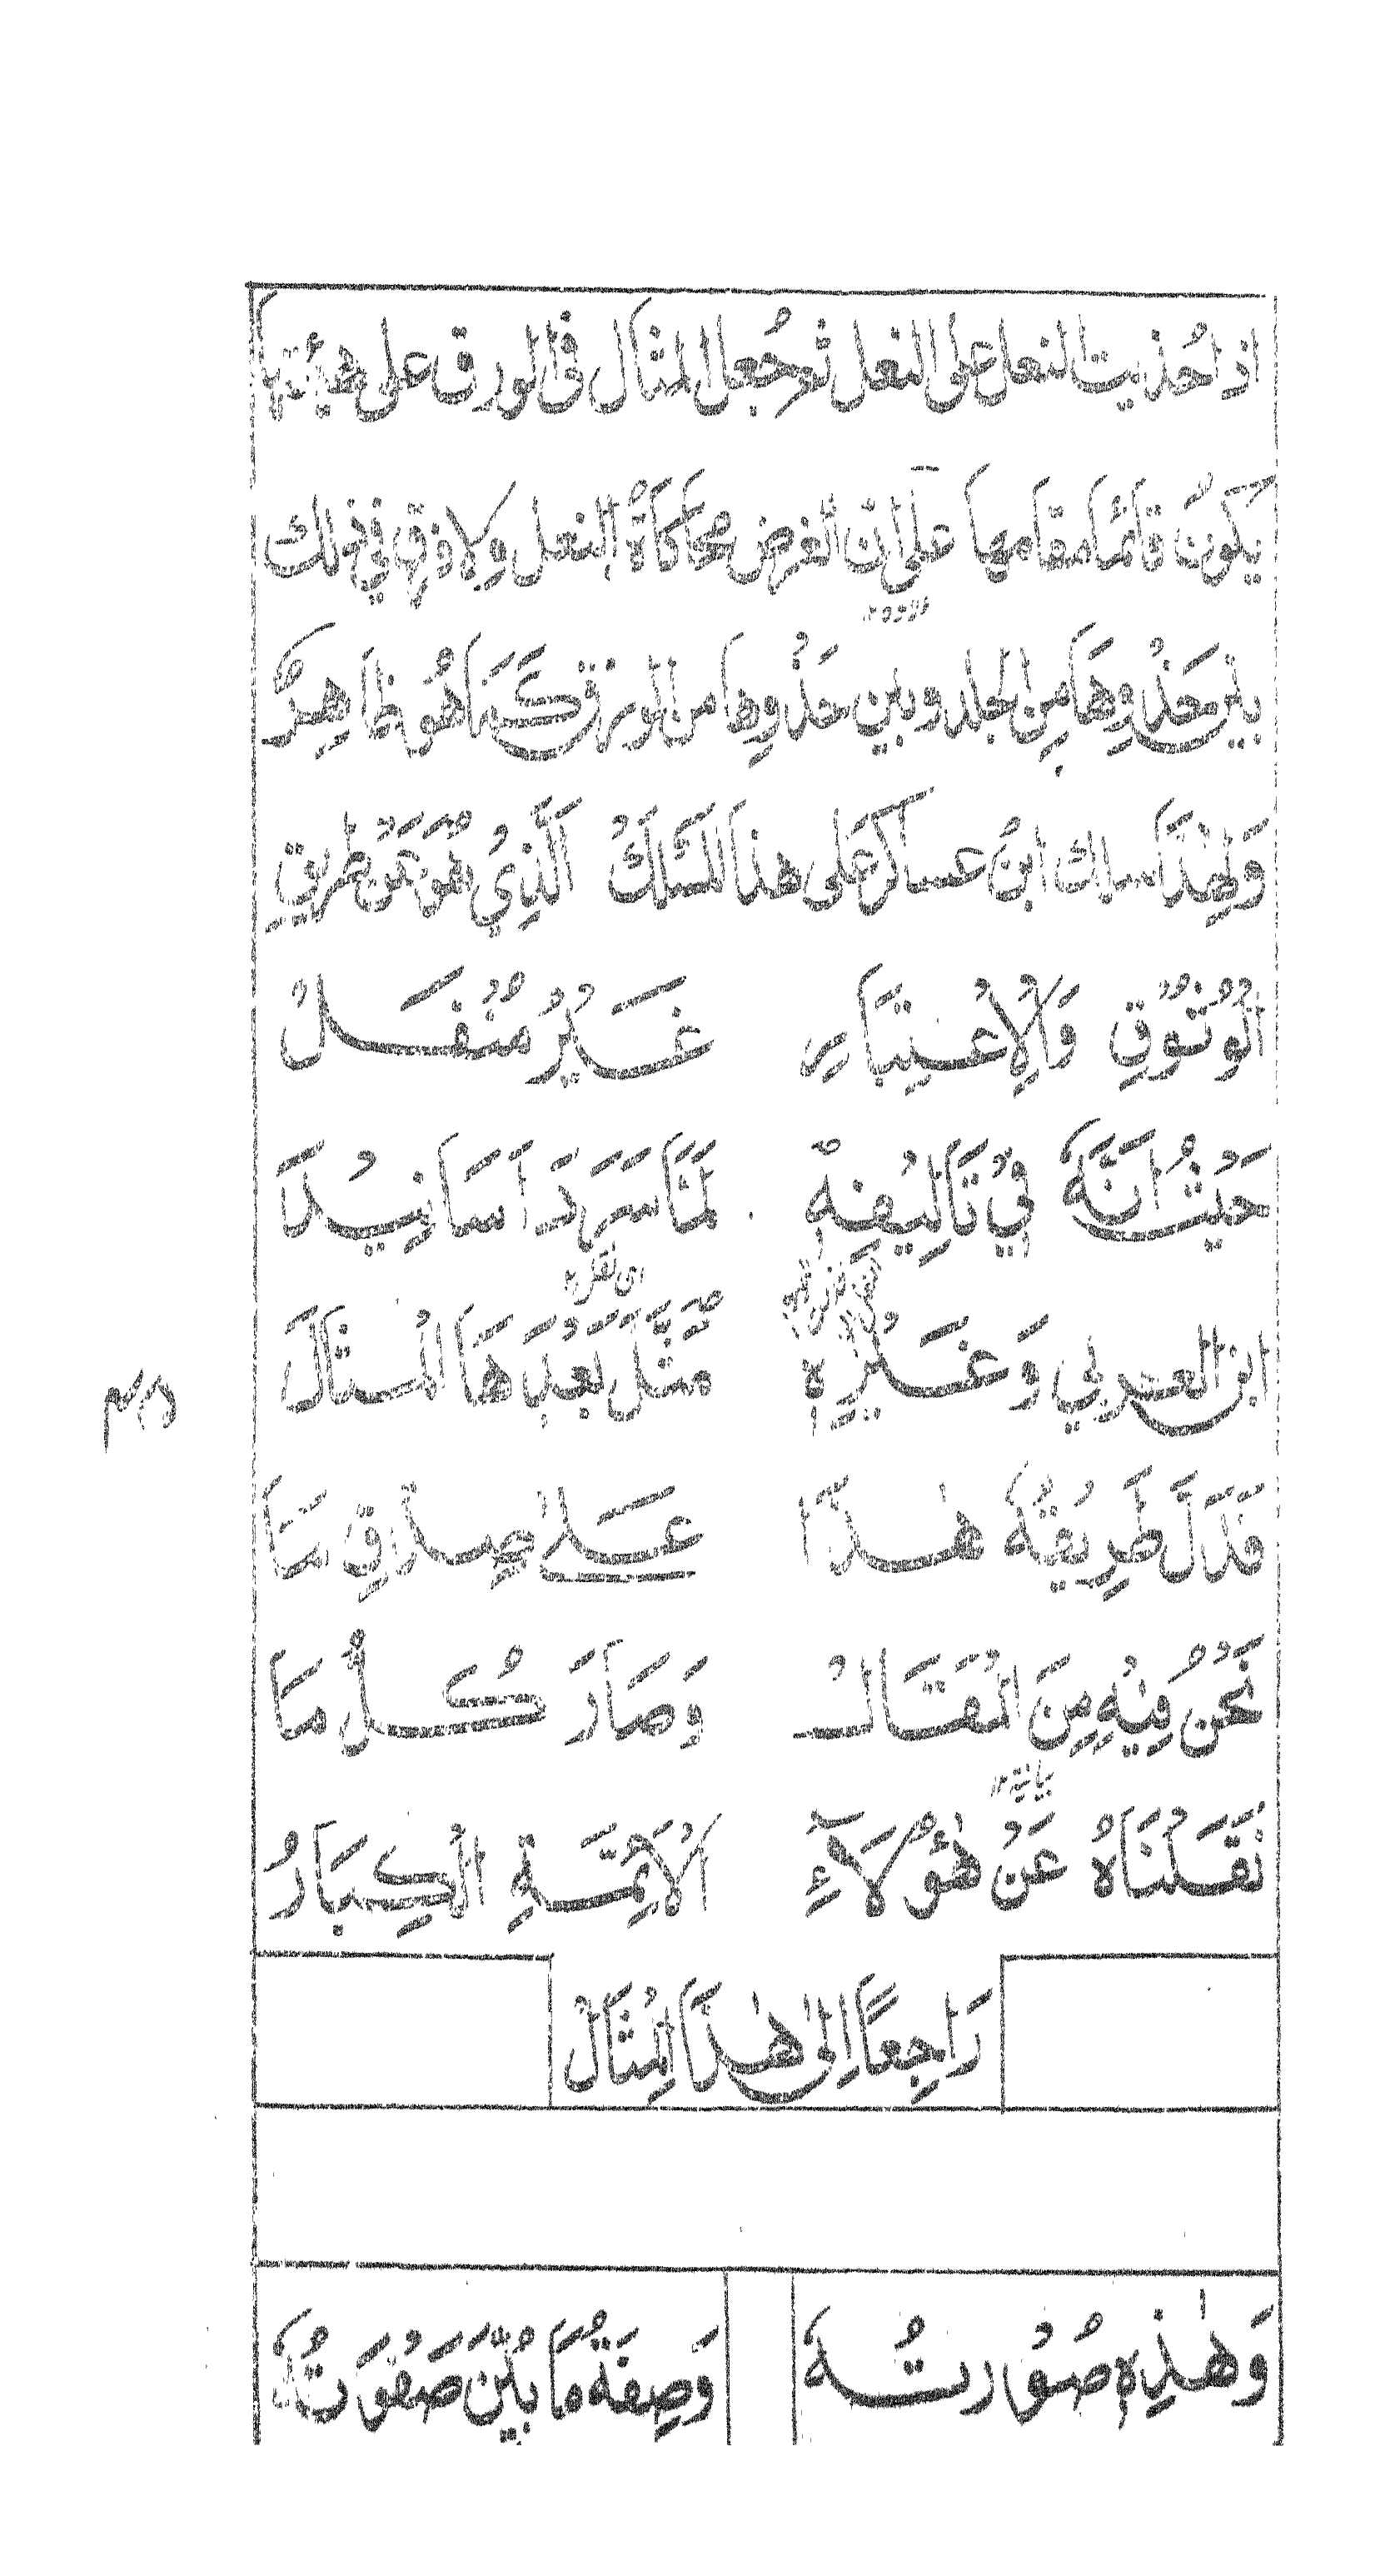 اذا حُذيت النعل على النعل ثم جُعل المثال في الورق على هيئتها
يَكُونُ قائمًا مقامها على ان الغرض محاكَاةُ النعل ولا فرق في ذلك
بين مَحْذُوِهَا مِن الجلد وبين حَذْوِها من الورق كَمَا هُوَ ظاهِرٌ
وَلِهٰذَا سلك ابنُ عساكر عَلى هذا المَسْلَكْ الَّذِيْ هُوَ نَحْوَ طَرِيقِ
الْوُثُوْقِ وَالْاِعْتِبَارِ غَيْرُ مُنْفَكْ
حَيْثُ اَنَّهٗ فِيْ تَالِيْفِهٖ لَمَّا سَرَدَ اَسَانِيْدَ
ابن العربي وَغَيْرِهٖ مَثَّلَ بَعْدَهَا الْمِثَالَ
اى نقل ١٢
فَدَلَّ طَرِيْقُهٗ هٰذَا عَلىٰ صِدْقِ مَا
نَحْنُ فِيْهِ مِنَ الْمَقَالْ وَصَارَ كُلُّ مَا
بيانية ١٢
نَقَلْنَاهُ عَنْ هٰؤُلَآءِ الْاَئِمَّةِ الْكِبَارْ
رَاجِعًا اِلىٰ هٰذَا الْمِثَالْ
وَهٰذِهٖ صُوْرَتُهٗ وَصِفَةُ مَا بَيْنَ صَفْوَتُهٗ